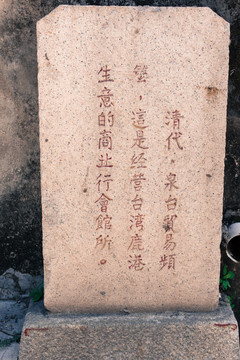 清代，泉台貿易頻
繁，這是经营台湾鹿港
生意的商业行會館所。